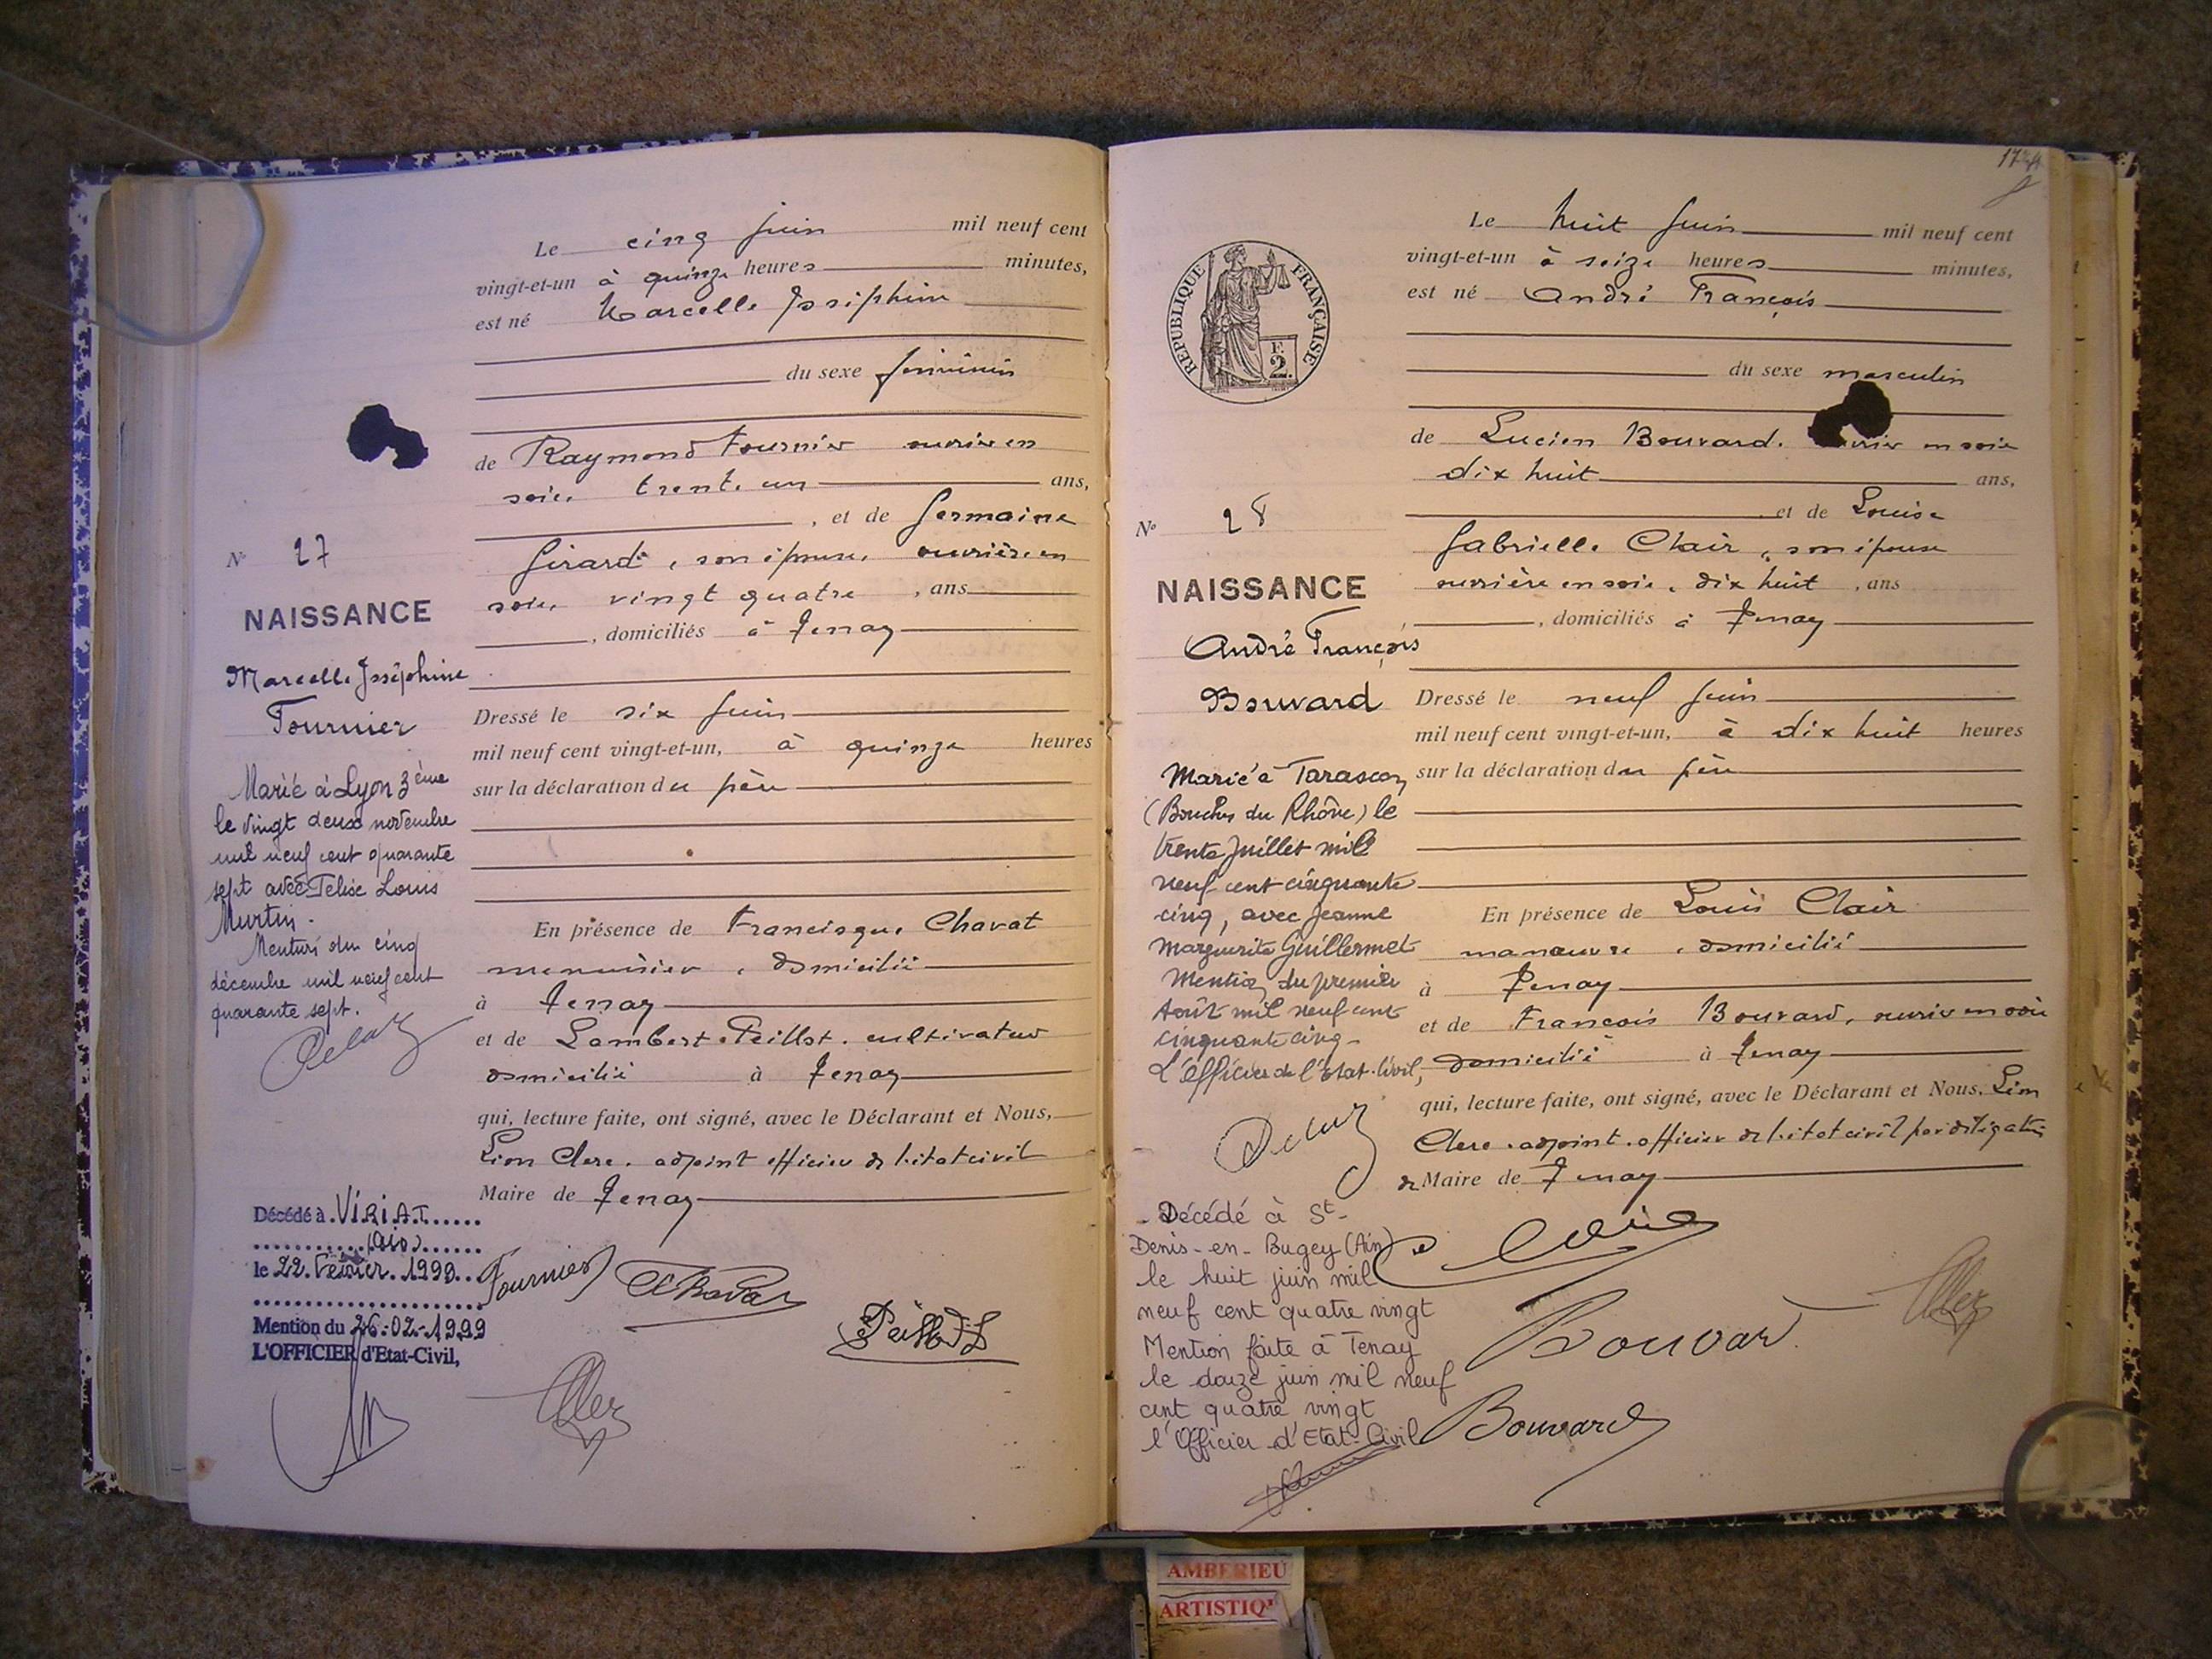 Le cinq juin mil neuf cent
vingt-et-un à quinze heures minutes,
est né Marcelle Joséphine
du sexe féminin
de Raymond Fournier ouvrier en
soie, trente un ans,
, et de Germaine
Girard, son épouse, ouvrière en
soie, vingt quatre , ans
, domiciliés à Tenay
Dressé le six juin
mil neuf cent vingt-et-un, à quinze heures
sur la déclaration du père
En présence de Francisque Chavat
menuisier, domicilié
à Tenay
et de Lambert Peillot. cultivateur
domicilié à Tenay
qui, lecture faite, ont signé, avec le Déclarant et Nous,
Léon Clerc. adjoint officier de l'état civil
Maire de Tenay
N° 27
NAISSANCE
Marcelle Joséphine
Fournier
Marié à Lyon 3ème
le vingt deux novembre
mil neuf cent quarante
sept avec Louis
Murtin.
Mention du cinq
décembre mil neuf cent
quarante sept.
Décédé à VIRIAT
(Ain)
le 22 Février 1999
Mention du 26-02-1999
L'OFFICIER d'Etat-Civil,
Fournier
Peillot L
REPUBLIQUE FRANÇAISE
F. 2.
Le huit juin mil neuf cent
vingt-et-un à seize heures minutes,
est né André François
du sexe masculin
de Lucien Bouvard. en soie
dix huit ans,
et de Louise
Gabrielle Clair, son épouse
ouvrière en soie, dix huit , ans
, domiciliés à Tenay
Dressé le neuf juin
mil neuf cent vingt-et-un, à dix huit heures
sur la déclaration du père
En présence de Louis Clair
manœuvre, domicilié
à Tenay
et de François Bouvard, ouvrier en soie
domicilié à Tenay
qui, lecture faite, ont signé, avec le Déclarant et Nous, Léon
Clerc. adjoint. officier de l'état civil par délégation
de Maire de Tenay
N° 28
NAISSANCE
André François
Bouvard
Marié à Tarascon
(Bouches du Rhône) le
trente juillet mil
neuf cent cinquante
cinq, avec Jeanne
Marguerite Guillermet
Mention du premier
Août mil neuf cent
cinquante cinq
L'officier de l'état-Civil,
Décédé à St-
Denis-en-Bugey (Ain)
le huit juin mil
neuf cent quatre vingt
Mention faite à Tenay
le douze juin mil neuf
cent quatre vingt
l'Officier d'Etat-Civil
Bouvard
Bouvard
AMBERIEU
ARTISTIQ